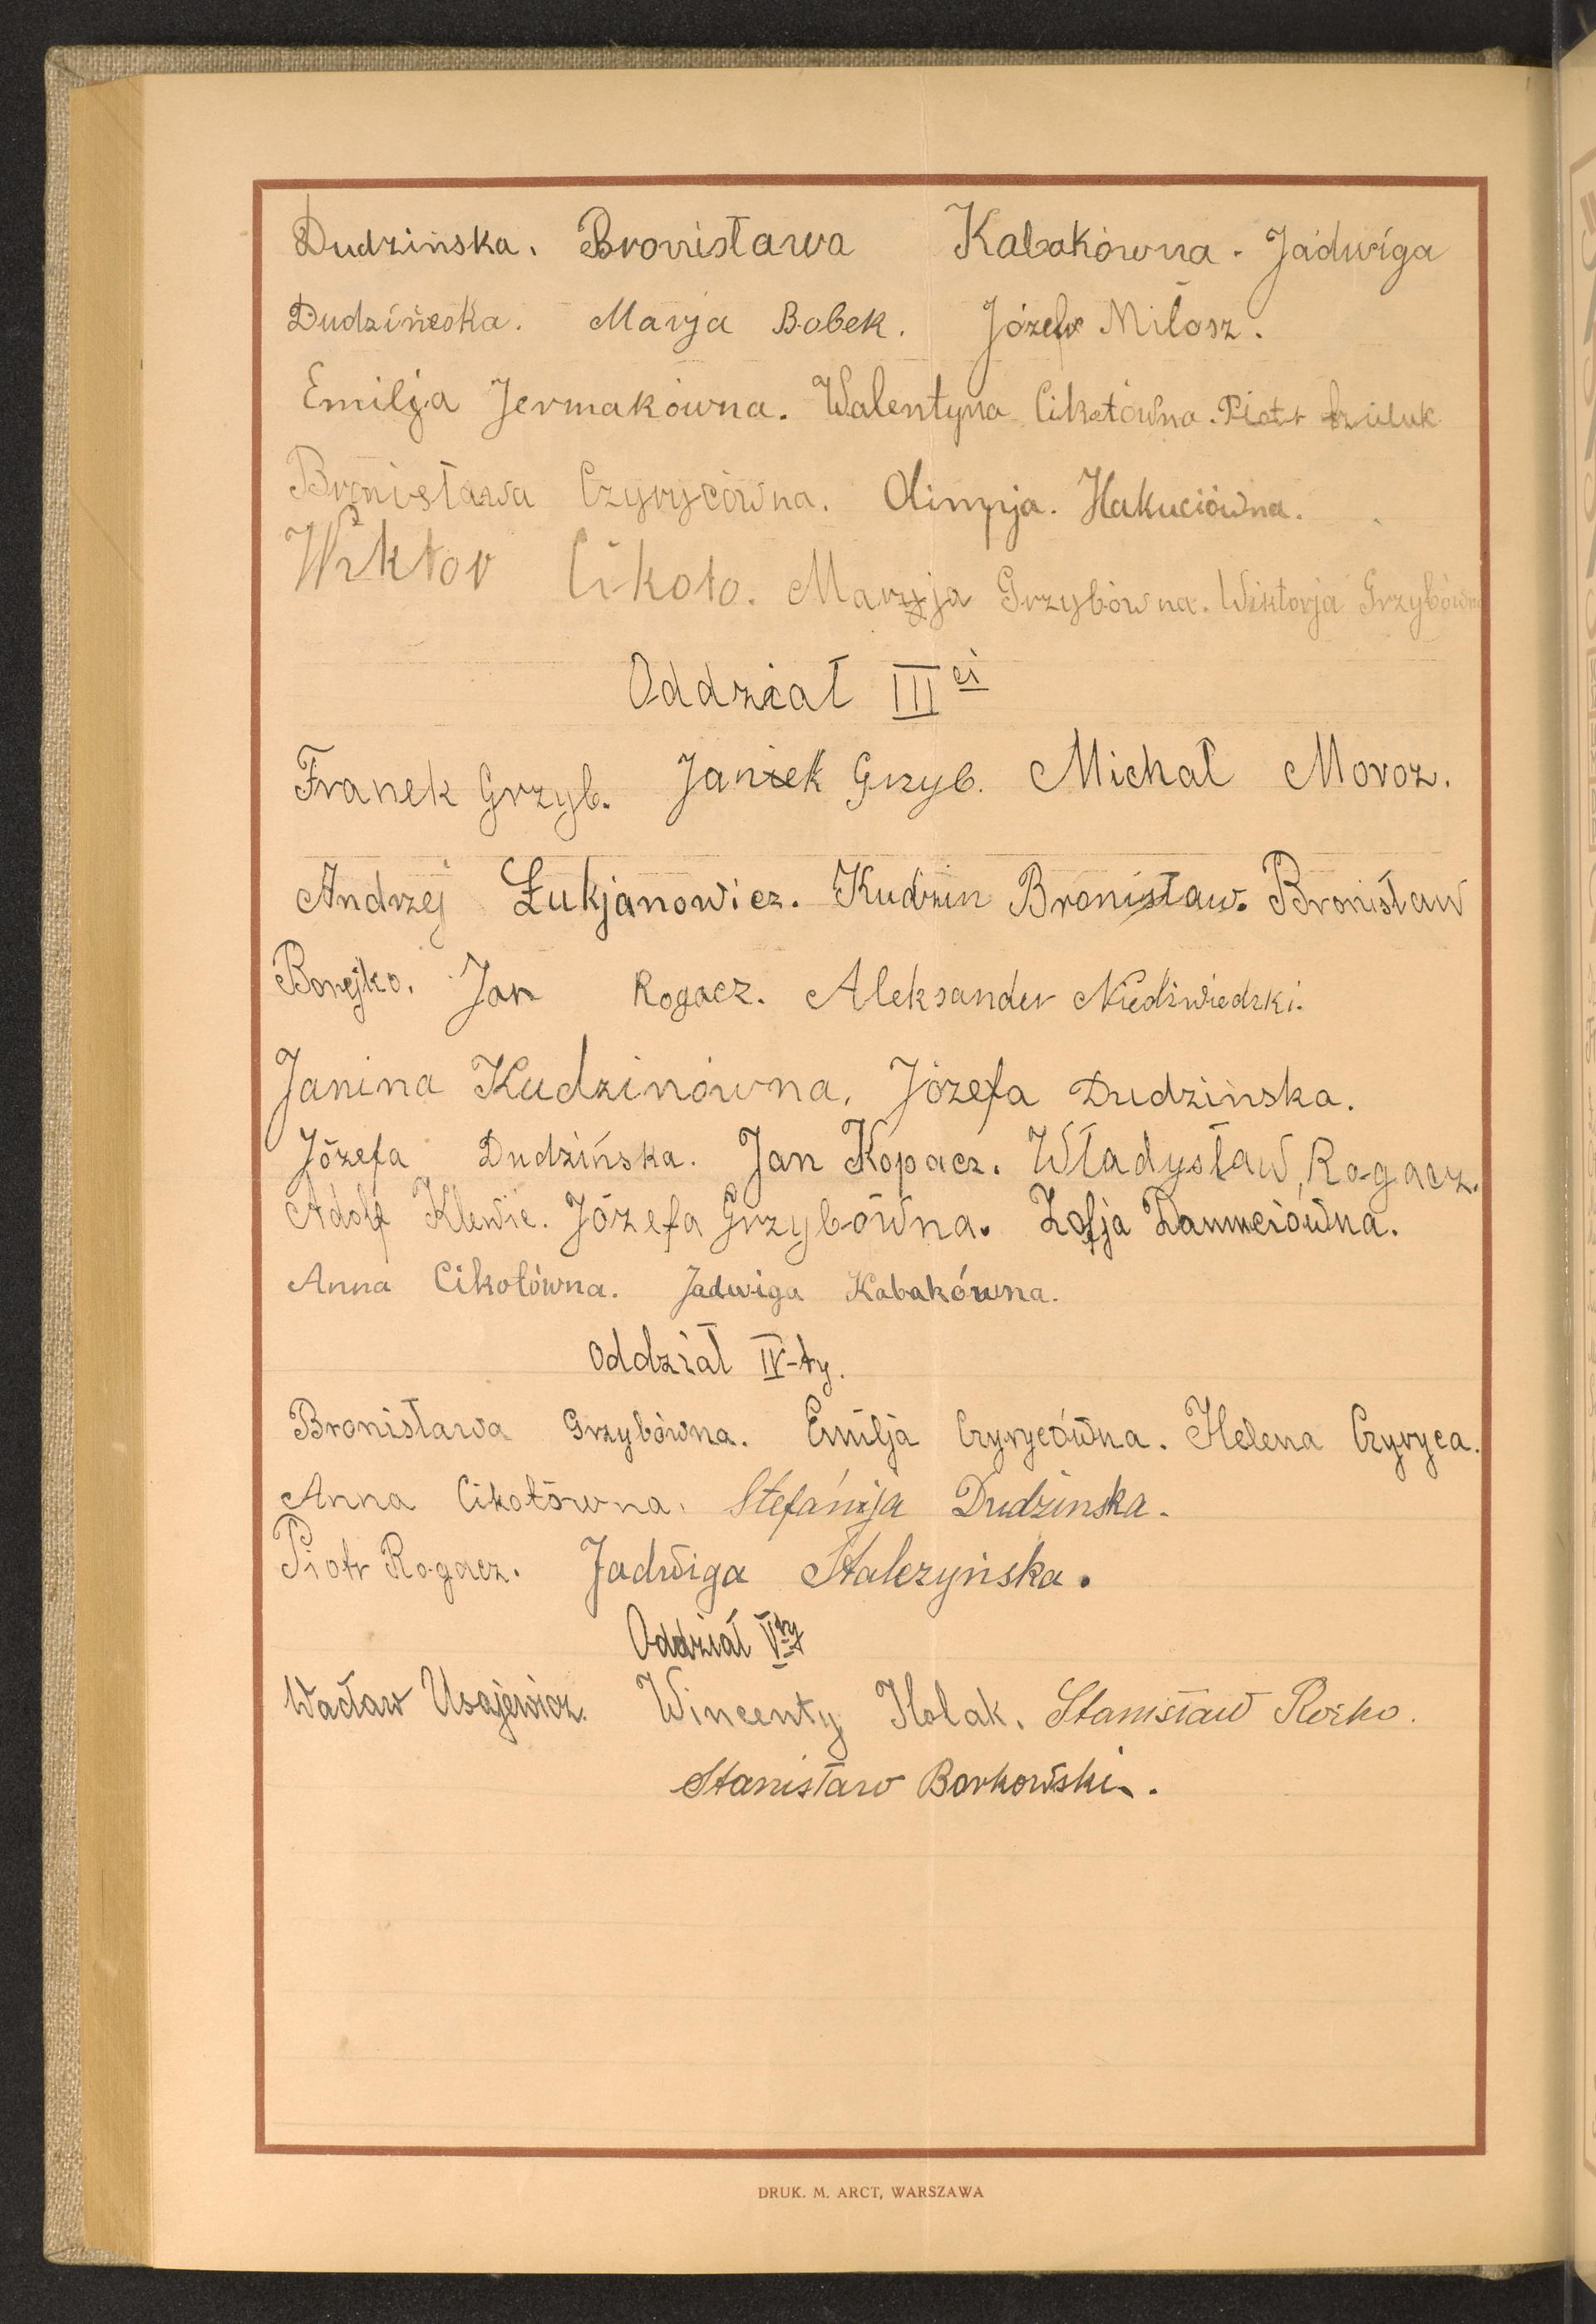 Dudzińska. Bronisława Kabakówna. Jadwiga
Dudzińska. Marja Bobek. Józef Miłosz.
Emilja Jermakówna. Walentyna Cikotówna. Piotr
Bronisława Czyrycówna. Olimpja. Hakuciówna.
Wiktor Cikoto. Maryja Grzybówna. Wiktorja Grzybówna
Oddział III ci
Franek Grzyb. Janek Grzyb. Michał Moroz.
Andrzej Łukjanowicz. Kudzin Bronisław. Bronisław
Borejko. Jan Rogacz. Aleksander Niedźwiedzki.
Janina Kudzinówna. Józefa Dudzińska.
Józefa Dudzińska. Jan Kopacz. Władysław Rogacz.
Adolf Klewic. Józefa Grzybówna. Zofja
Anna Cikotówna. Jadwiga Kabakówna.
Oddział IV-ty.
Bronisława Grzybówna. Emilja Czyrycówna. Helena Czyryca.
Anna Cikotówna. Stefanija Dudzinska.
Piotr Rogacz. Jadwiga Stalczyńska.
Oddział V ty
Wacław Usajewicz. Wincenty Holak. Stanisław Rożko.
Stanisław Borkowski.
DRUK. M. ARCT, WARSZAWA